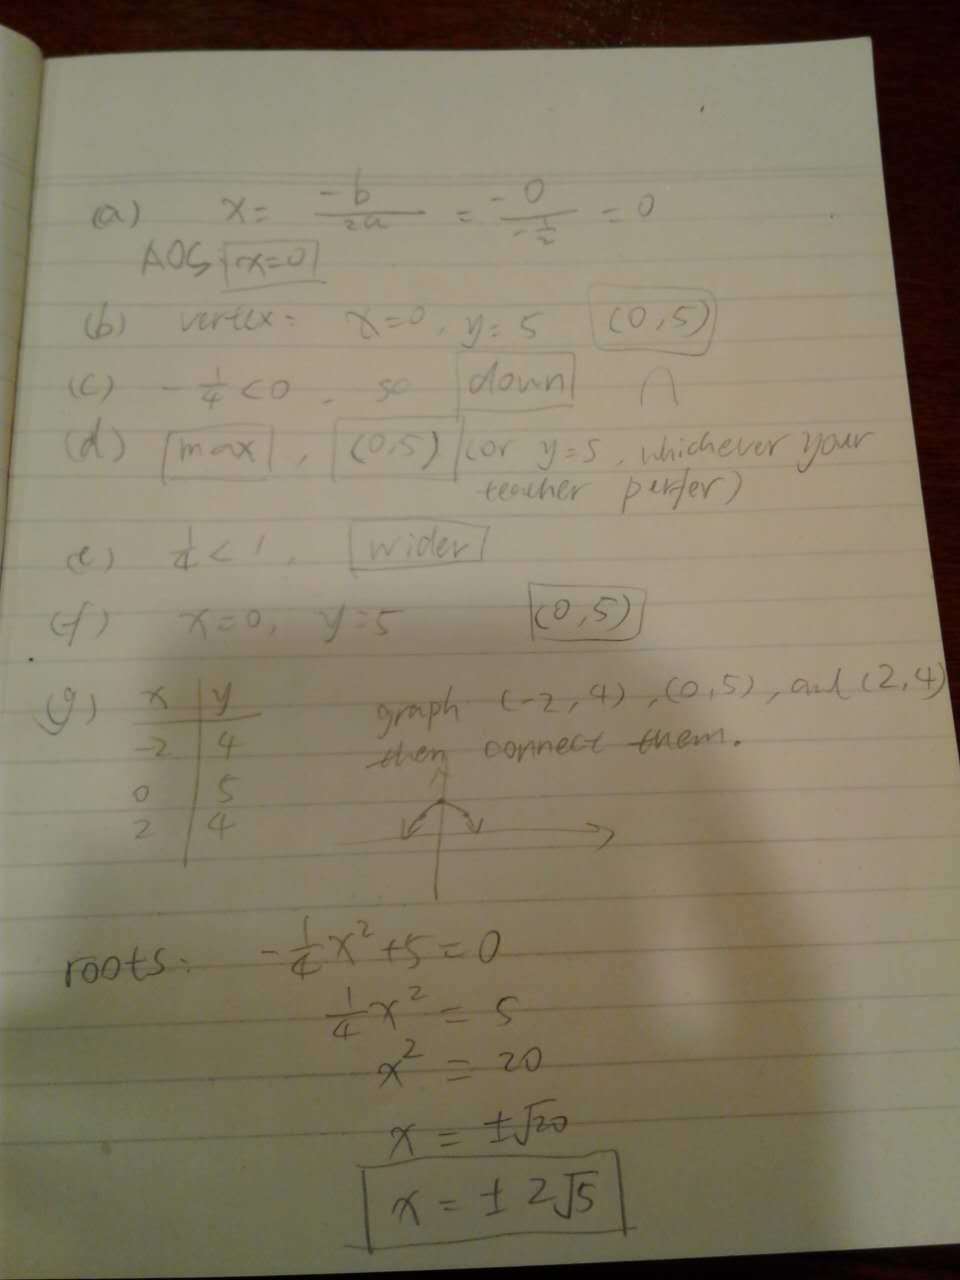 (a) x = -b/2a = -0/-1/2 = 0
AOS x=0
(b) vertex: x=0, y=5 (0,5)
(c) -1/4 < 0, so down ∩
(d) max, (0,5) (or y=5, whichever your
teacher perfer)
(e) 1/4 < 1, wider
(f) x=0, y=5 (0,5)
(g) x y
-2 4
0 5
2 4
graph (-2,4), (0,5), and (2,4)
then connect them.
roots: -1/4x² + 5 = 0
1/4x² = 5
x² = 20
x = ±√20
x = ±2√5